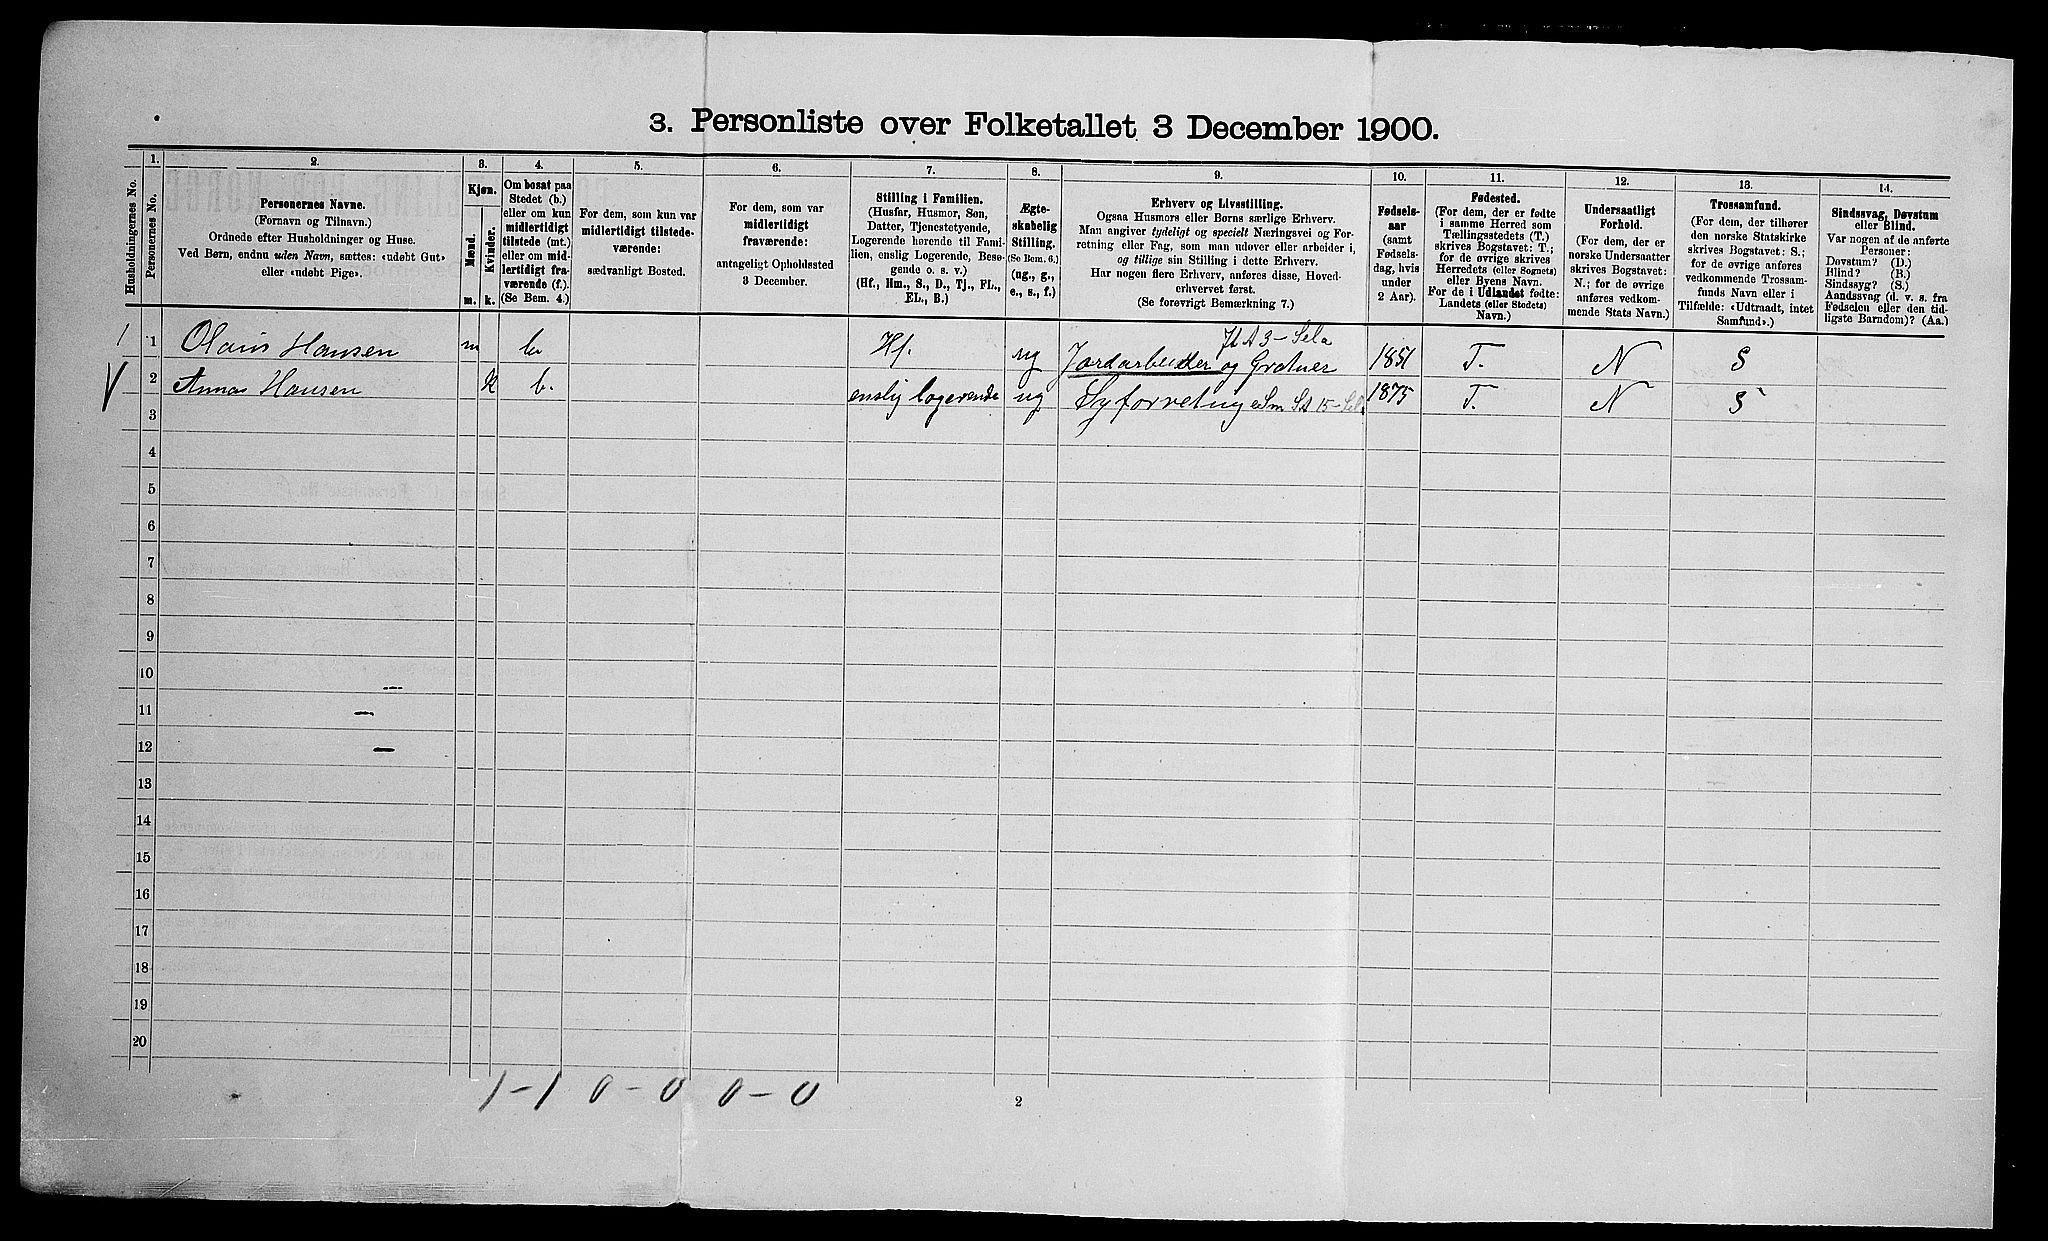 3. Personliste over Folketallet 3 December 1900.
Husholdningernes No.
1.
Personernes No.
2.
Personernes Navne.
(Fornavn og Tilnavn.)
Ordnede efter Husholdninger og Huse.
Ved Børn, endnu uden Navn, sættes: «udøbt Gut»
eller «udøbt Pige».
3.
Kjøn.
Mænd.
m.
Kvinder.
k.
4.
Om bosat paa
Stedet (b.)
eller om kun
midlertidigt
tilstede (mt.)
eller om mid-
lertidigt fra-
værende (f.).
(Se Bem. 4.)
5.
For dem, som kun var
midlertidigt tilstede-
værende:
sædvanligt Bosted.
6.
For dem, som var
midlertidigt
fraværende:
antageligt Opholdssted
3 December.
7.
Stilling i Familien.
(Husfar, Husmor, Søn,
Datter, Tjenestetyende,
Logerende hørende til Fami-
lien, enslig Logerende, Besø-
gende o. s. v.)
(Hf., Hm., S., D., Tj., FL.,
EL., B.)
8.
Ægte-
skabelig
Stilling.
(Se Bem. 6.)
(ug., g.,
e., s., f.)
9.
Erhverv og Livsstilling.
Ogsaa Husmors eller Børns særlige Erhverv.
Man angiver tydeligt og specielt Næringsvei og For-
retning eller Fag, som man udøver eller arbeider i,
og tillige sin Stilling i dette Erhverv.
Har nogen flere Erhverv, anføres disse, Hoved-
erhvervet først.
(Se forøvrigt Bemærkning 7.)
10.
Fødsels-
aar
(samt
Fødsels-
dag, hvis
under
2 Aar).
11.
Fødested.
(For dem, der er fødte
i samme Herred som
Tællingsstedets (T.)
skrives Bogstavet: T.;
for de øvrige skrives
Herredets (eller Sognets)
eller Byens Navn.
For de i Udlandet fødte:
Landets (eller Stedets)
Navn.)
12.
Undersaatligt
Forhold.
(For dem, der er
norske Undersaatter
skrives Bogstavet:
N.; for de øvrige
anføres vedkom-
mende Stats Navn.)
13.
Trossamfund.
(For dem, der tilhører
den norske Statskirke
skrives Bogstavet: S.;
for de øvrige anføres
vedkommende Trossam-
funds Navn eller i
Tilfælde: «Udtraadt, intet
Samfund».)
14.
Sindssvag, Døvstum
eller Blind.
Var nogen af de anførte
Personer:
Døvstum? (D.)
Blind? (B.)
Sindssyg? (S.)
Aandssvag (d. v. s. fra
Fødselen eller den tid-
ligste Barndom)? (Aa.)
Jl A 3 - Sela
1 1 Olaus Hansen m b Hf. ug Jordarbeider og 1851 T. N S
2 Anna Hansen k b. enslig logerende ug Syforretning 1875 T. N S
3
4
5
6
7
8
9
10
11
12
13
14
15
16
17
18
19
20
1-1 0-0 0-0
2